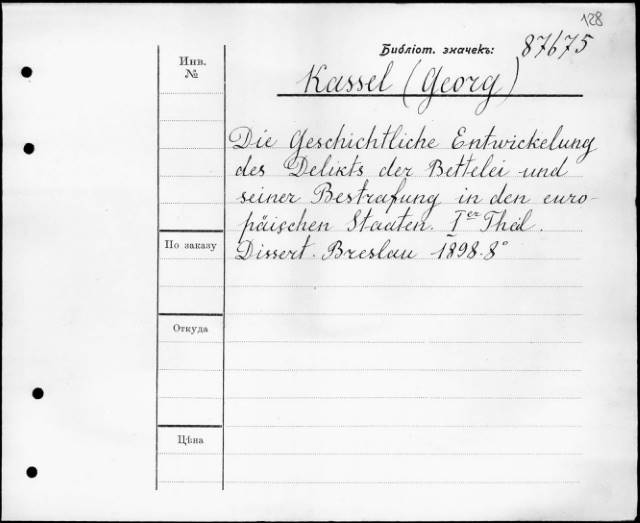 128
Библіот. значекъ: 87675
Инв.
№
Kassel (Georg)
Die Geschichtliche Entwickelung
des Delikts der Bettelei und
seiner Bestrafung in den euro-
päischen Staaten. I er Theil.
По заказу
Dissert. Breslau 1898. 8°
Откуда
Цѣна